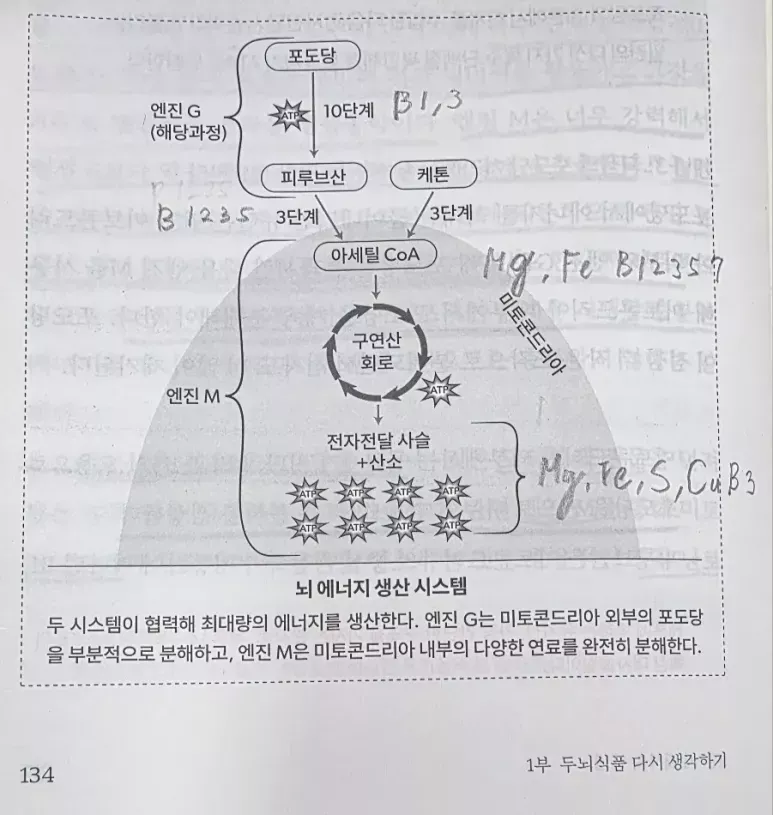 포도당
엔진 G
(해당과정)
ATP
10단계
B1,3
피루브산
케톤
B1235
3단계
3단계
아세틸 CoA
Mg, Fe B12357
미토콘드리아
구연산
회로
엔진 M
ATP
전자전달 사슬
+산소
Mg, Fe, S, Cu B3
ATP ATP ATP ATP
ATP ATP ATP ATP
뇌 에너지 생산 시스템
두 시스템이 협력해 최대량의 에너지를 생산한다. 엔진 G는 미토콘드리아 외부의 포도당
을 부분적으로 분해하고, 엔진 M은 미토콘드리아 내부의 다양한 연료를 완전히 분해한다.
134
1부 두뇌식품 다시 생각하기